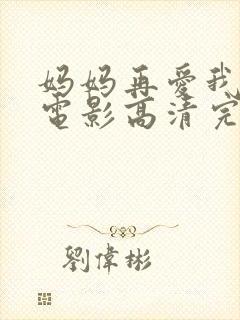 妈妈再愛我
電影高清完
劉偉彬